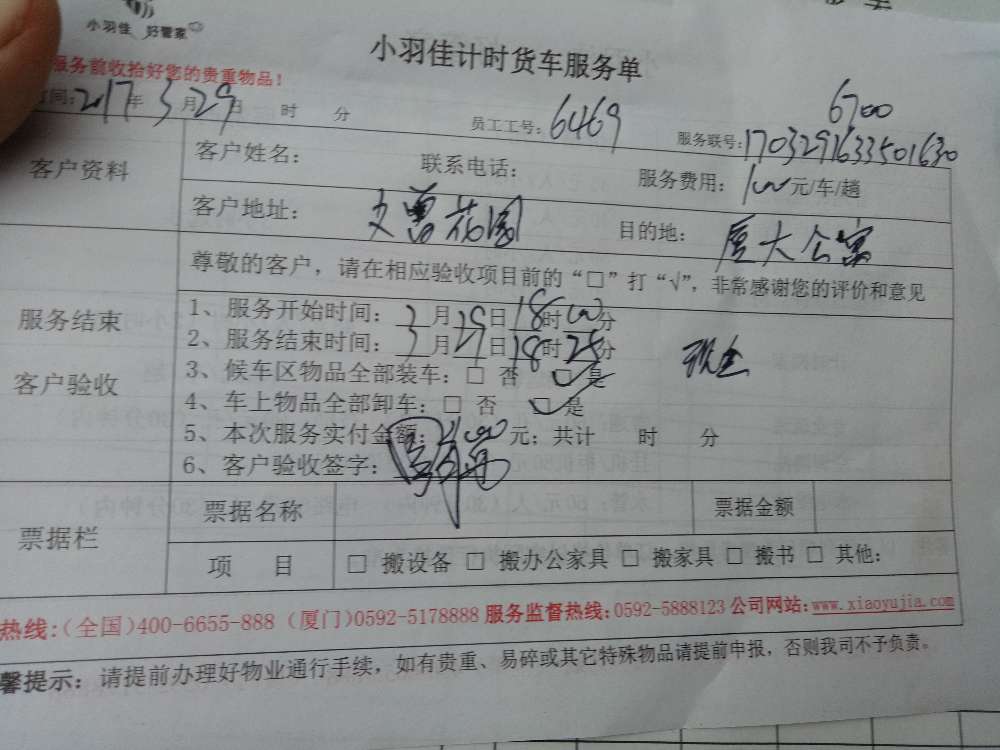 小羽佳 好管家
小羽佳计时货车服务单
服务前收拾好您的贵重物品！
时间：2017年3月29日 时 分 员工工号：6469 服务联号：1703291633501630
6700
客户资料
客户姓名： 联系电话： 服务费用：100元/车/趟
客户地址：文曾花园 目的地：厦大公寓
服务结束
客户验收
尊敬的客户，请在相应验收项目前的“□”打“√”，非常感谢您的评价和意见
1、服务开始时间：3月29日18时00分
2、服务结束时间：3月29日18时25分
3、候车区物品全部装车：□ 否 □ 是
现金
4、车上物品全部卸车：□ 否 □ 是
5、本次服务实付金额：100元；共计 时 分
6、客户验收签字：
票据栏
票据名称 票据金额
项 目 □ 搬设备 □ 搬办公家具 □ 搬家具 □ 搬书 □ 其他：
热线：（全国）400-6655-888（厦门）0592-5178888 服务监督热线：0592-5888123 公司网站：www.xiaoyujia.com
馨提示：请提前办理好物业通行手续，如有贵重、易碎或其它特殊物品请提前申报，否则我司不予负责。